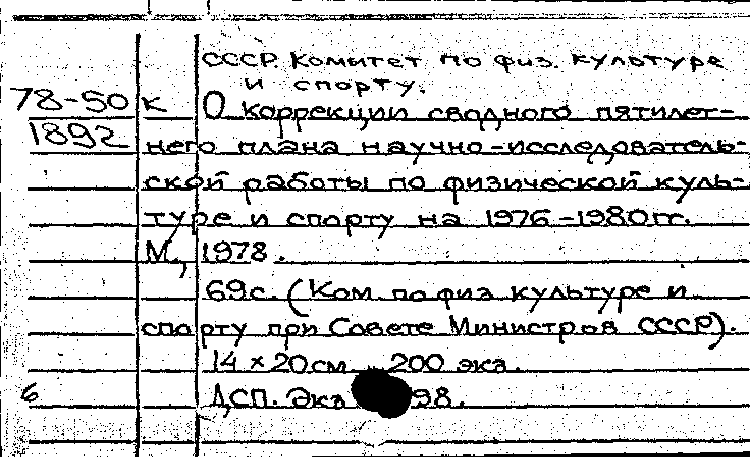 СССР. Комитет по физ. культуре
и спорту.
78-50 к О коррекции сводного пятилет-
1892 него плана научно-исследователь-
ской работы по физической куль-
туре и спорту на 1976-1980 гг.
М., 1978.
69с. (Ком. по физ культуре и
спорту при Совете Министров СССР).
14 × 20 см. 200 экз.
6 ДСП. Экз 98.